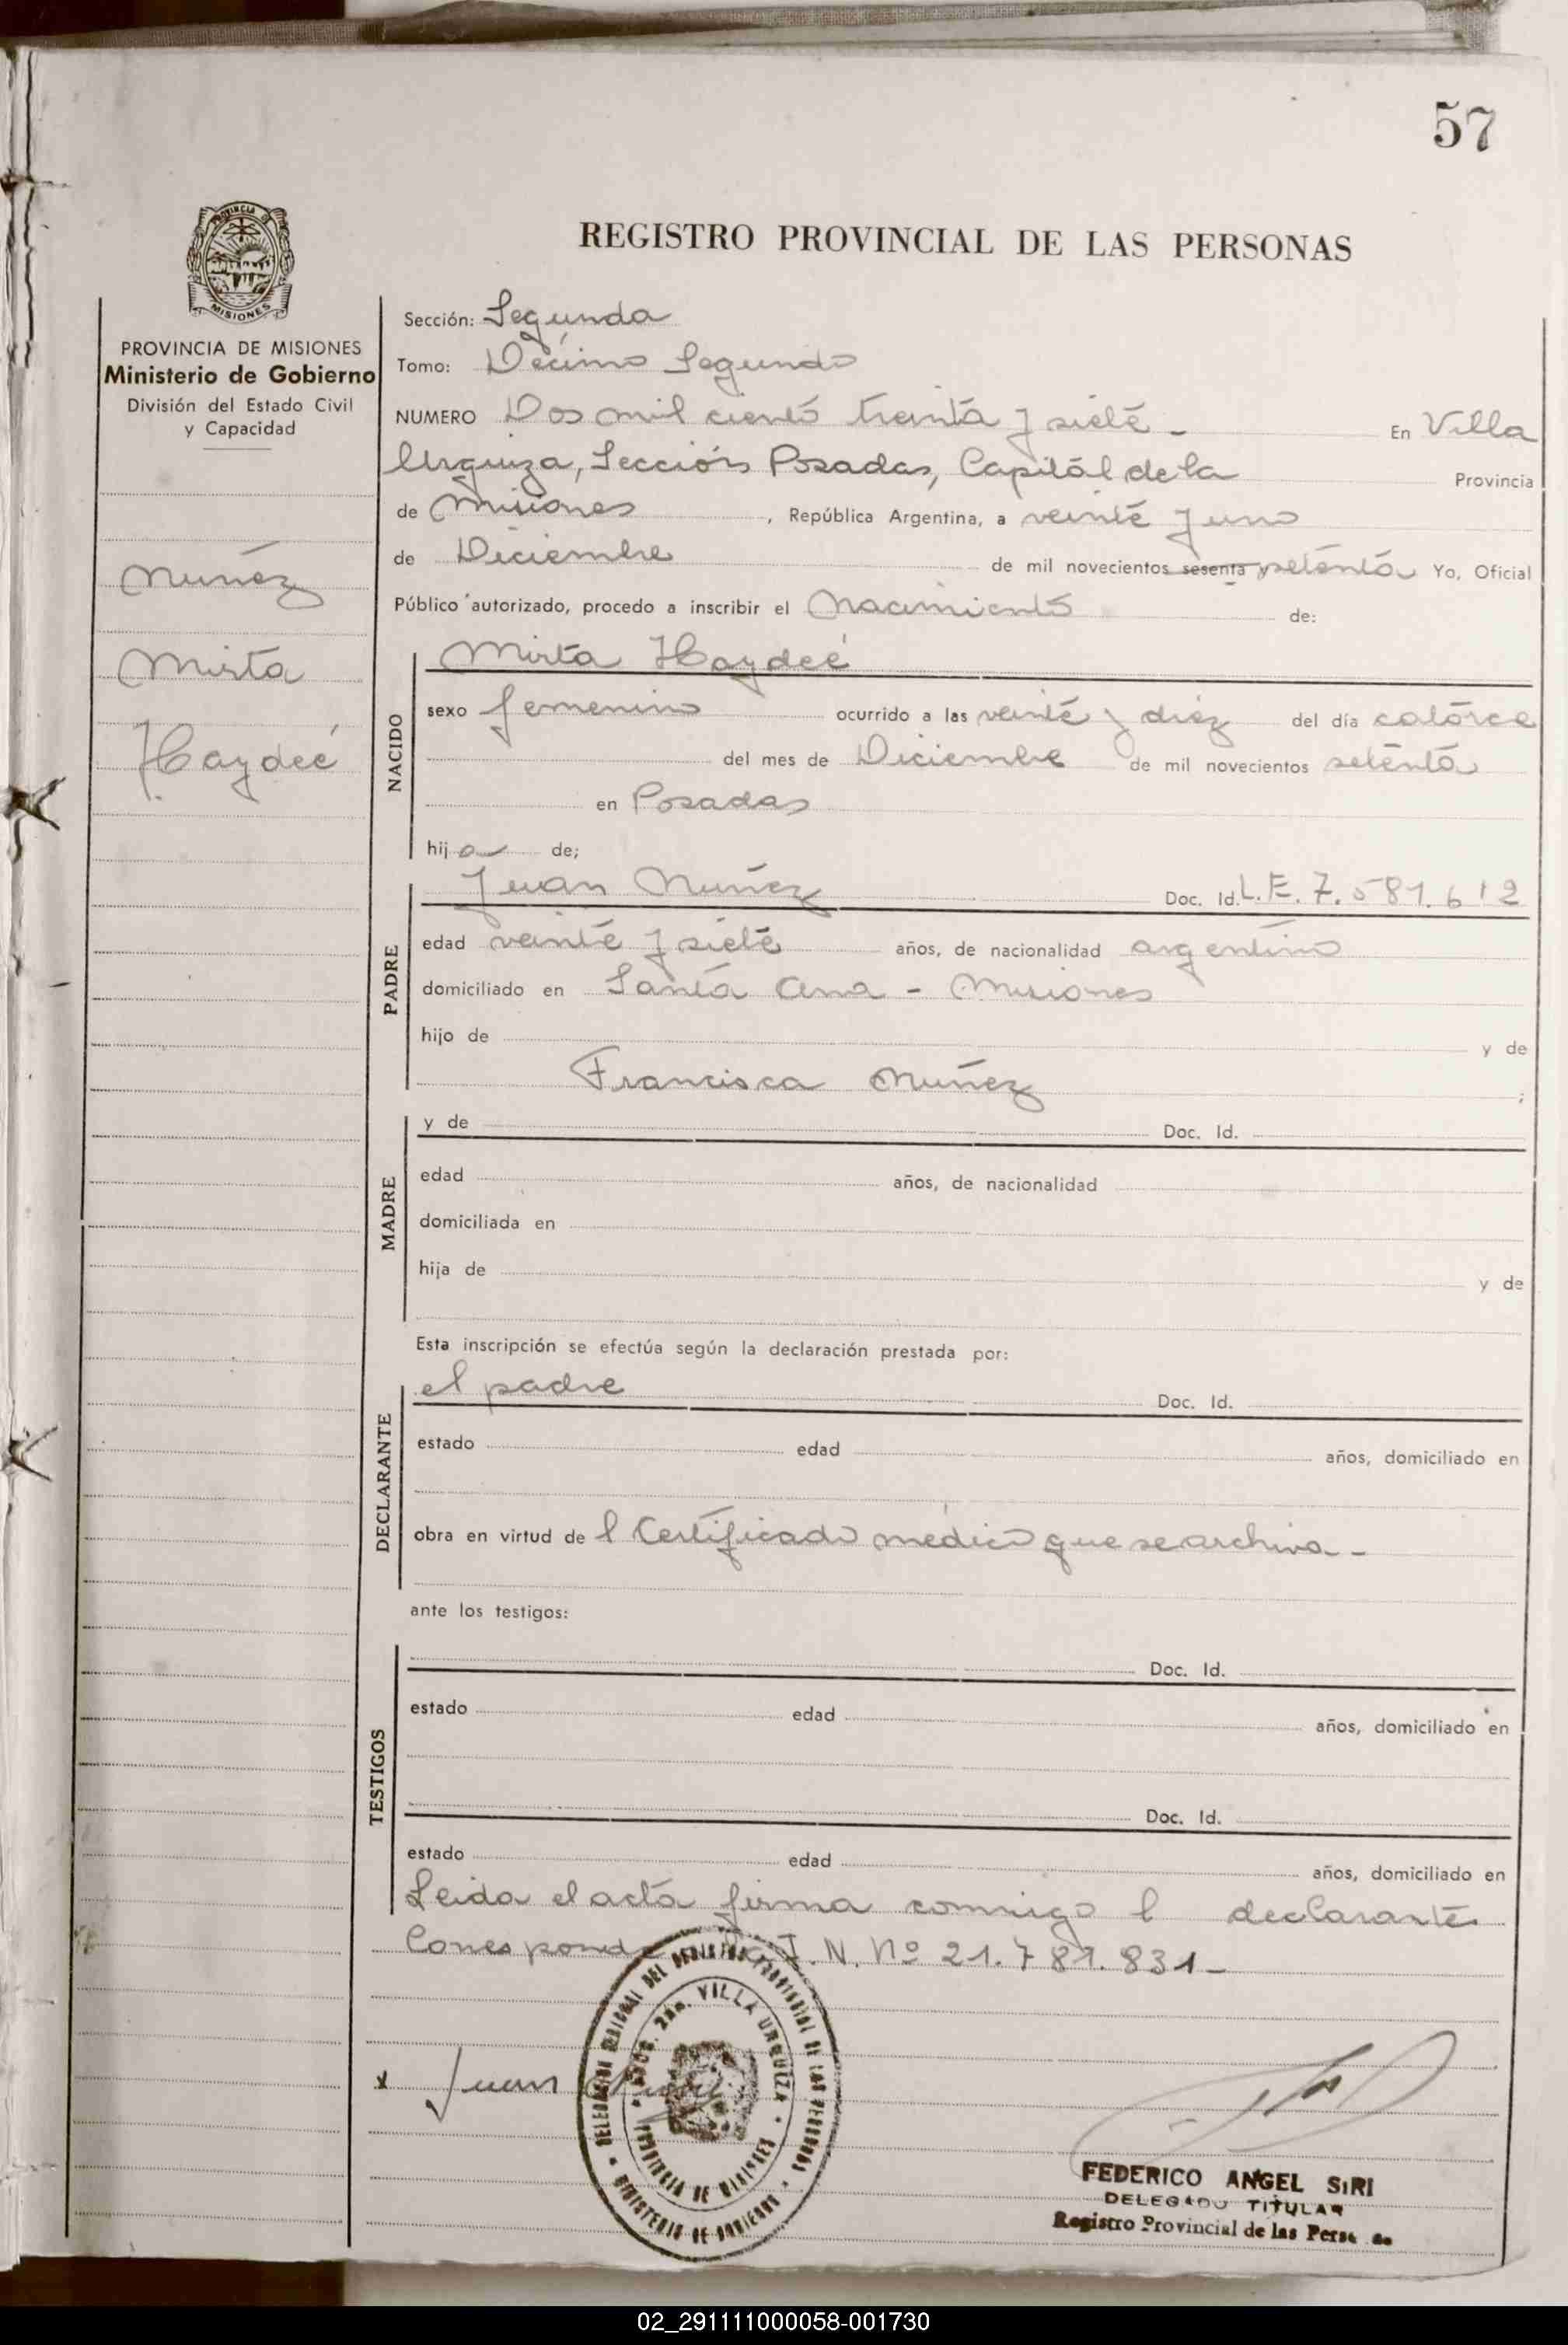 57
PROVINCIA DE
MISIONES
PROVINCIA DE MISIONES
Ministerio de Gobierno
División del Estado Civil
y Capacidad
Nuñez
Mirta
Haydeé
REGISTRO PROVINCIAL DE LAS PERSONAS
Sección: Segunda
Tomo: Décimo Segundo
NUMERO Dos mil ciento treinta y siete - En Villa
Urquiza, Sección Posadas, Capital de la Provincia
de Misiones, República Argentina, a veinte y uno
de Diciembre de mil novecientos sesenta y setenta Yo, Oficial
Público autorizado, procedo a inscribir el Nacimiento de:
NACIDO
Mirta Haydeé
sexo femenino ocurrido a las veinte y diez del día catorce
del mes de Diciembre de mil novecientos setenta
en Posadas
hija de;
PADRE
Juan Nuñez Doc. Id. L.E. 7.581.612
edad veinte y siete años, de nacionalidad argentino
domiciliado en Santa Ana - Misiones
hijo de y de
Francisca Nuñez ;
MADRE
y de Doc. Id.
edad años, de nacionalidad
domiciliada en
hija de y de
Esta inscripción se efectúa según la declaración prestada por:
DECLARANTE
el padre Doc. Id.
estado edad años, domiciliado en
obra en virtud de l Certificado médico que se archiva -
ante los testigos:
TESTIGOS
Doc. Id.
estado edad años, domiciliado en
Doc. Id.
estado edad años, domiciliado en
Leida el acta firma conmigo l declarante
Corresponde I.N. Nº 21.781.831 -
x Juan Nuñez
DELEGACION DEL REGISTRO PROVINCIAL DE LAS PERSONAS
MINISTERIO DE GOBIERNO
SECC. 2da. VILLA URQUIZA
PROVINCIA DE MISIONES
FEDERICO ANGEL SIRI
DELEGADO TITULAR
Registro Provincial de las Pers
02_291111000058-001730